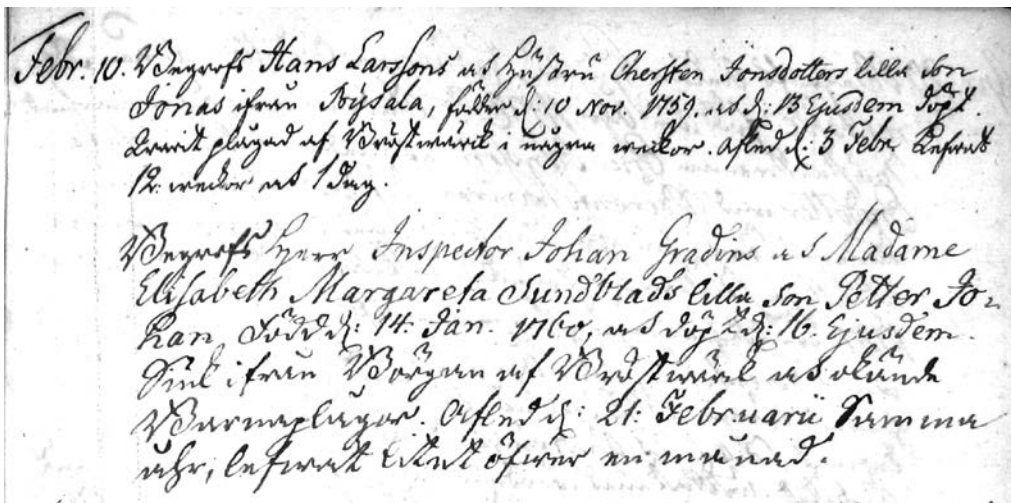 Febr. 10. Begrofs Hans Larssons och Hustru Chersten Jonsdotters lilla son
Jonas ifrån Böysala, födder d: 10 Nov. 1759. och d: 13 Ejusdem döpt.
warit plågad af Bröstwärck i några weckor. Afled d: 3 Febr. Lefwat
12. weckor och 1 dag.
Begrofs Herr Inspector Johan Gradins och Madame
Elisabeth Margareta Sundblads lilla Son Petter Jo-
han, Född d: 14. Jan. 1760, och döpt d: 16. Ejusdem.
Siuk ifrån Börgan af Bröstwärck och okände
Barnaplågor. Afled d: 21. Februarii Samma
åhr, lefwat litet öfwer en månad.